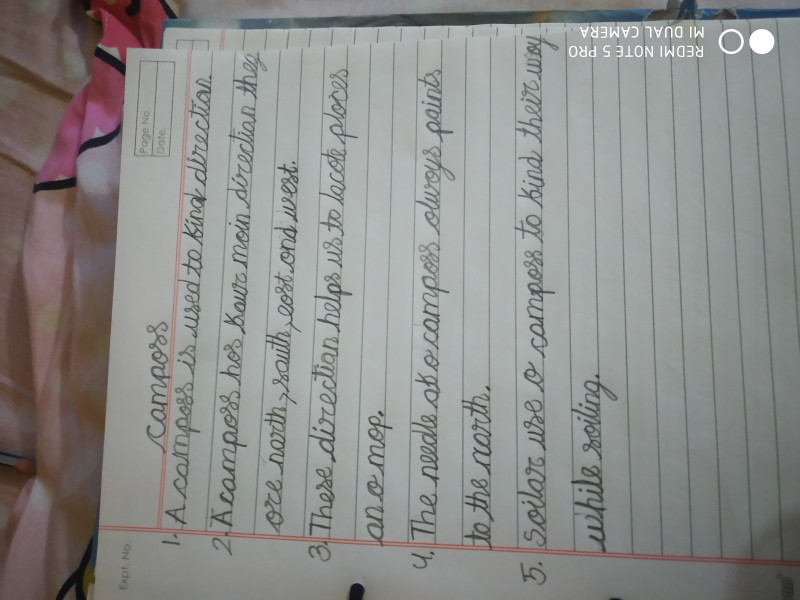 Page No.
Date.
Expt. No.
Compass
1. A compass is used to find direction.
2. A compass has four main direction they
are north, south, east and west.
3. These direction helps us to locate places
on a map.
4. The needle of a compass always points
to the north.
5. Sailar use a compass to find their way
while sailing.
REDMI NOTE 5 PRO
MI DUAL CAMERA